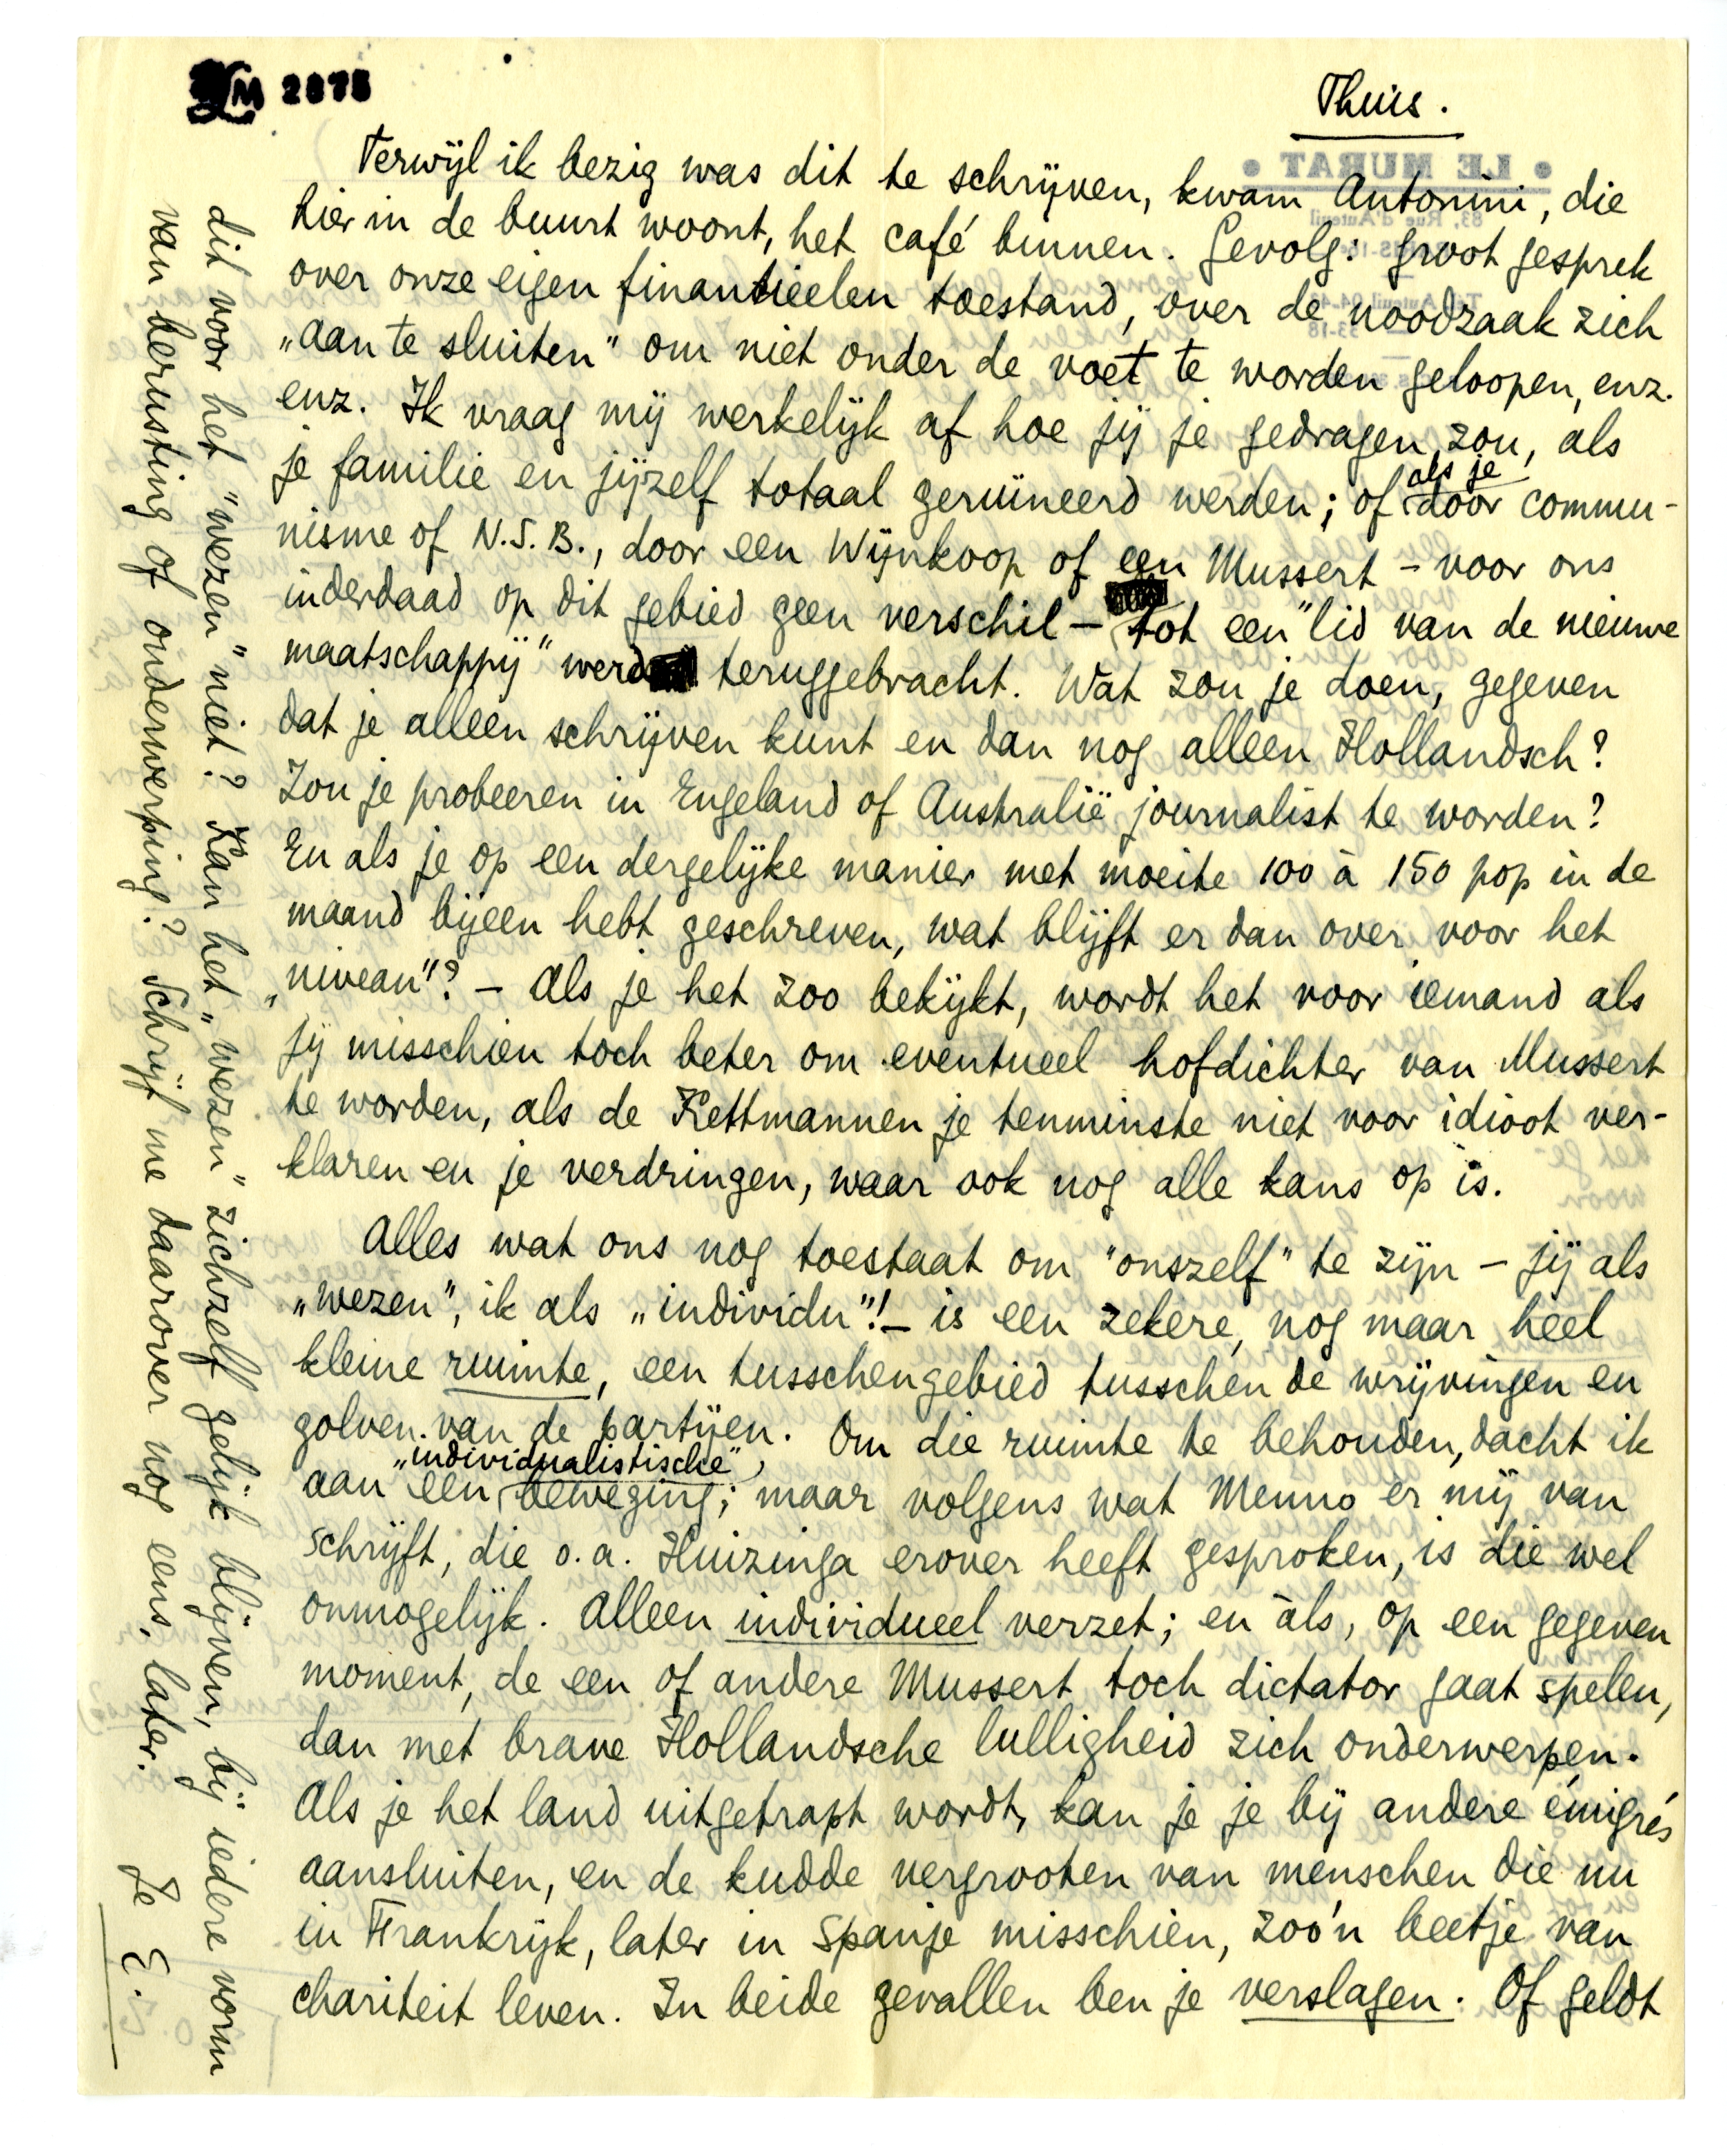 LM 2875
Thuis.
• LE MURAT •
83, Rue d'Auteuil
Terwijl ik bezig was dit te schrijven, kwam Antonini, die
hier in de buurt woont, het café binnen. Gevolg: groot gesprek
over onze eigen finantieelen toestand, over de noodzaak zich
„aan te sluiten" om niet onder de voet te worden geloopen, enz.
enz. Ik vraag mij werkelijk af hoe jij je gedragen zou, als
je familie en jijzelf totaal geruïneerd werden; of als je door commu-
nisme of N.S.B., door een Wijnkoop of een Mussert – voor ons
inderdaad op dit gebied geen verschil – tot een "lid van de nieuwe
maatschappij" werd teruggebracht. Wat zou je doen, gegeven
dat je alleen schrijven kunt en dan nog alleen Hollandsch?
Zou je probeeren in Engeland of Australië journalist te worden?
En als je op een dergelijke manier met moeite 100 à 150 pop in de
maand bijeen hebt geschreven, wat blijft er dan over voor het
„niveau"? – Als je het zoo bekijkt, wordt het voor iemand als
jij misschien toch beter om eventueel hofdichter van Mussert
te worden, als de Kettmannen je tenminste niet voor idioot ver-
klaren en je verdringen, waar ook nog alle kans op is.
Alles wat ons nog toestaat om "onszelf" te zijn – jij als
„wezen", ik als „individu"! – is een zekere, nog maar heel
kleine ruimte, een tusschengebied tusschen de wrijvingen en
golven van de partijen. Om die ruimte te behouden, dacht ik
aan een „individualistische" beweging; maar volgens wat Menno er mij van
schrijft, die o.a. Huizinga erover heeft gesproken, is die wel
onmogelijk. Alleen individueel verzet; en àls, op een gegeven
moment, de een of andere Mussert toch dictator gaat spelen,
dan met brave Hollandsche lulligheid zich onderwerpen.
Als je het land uitgetrapt wordt, kan je je bij andere émigrés
aansluiten, en de kudde vergrooten van menschen die nu
in Frankrijk, later in Spanje misschien, zoo'n beetje van
chariteit leven. In beide gevallen ben je verslagen. Of geldt
dit voor het "wezen" niet? Kan het „wezen" zichzelf gelijk blijven, bij iedere vorm
van berusting of onderwerping? Schrijf me daarover nog eens, later.
Je E.